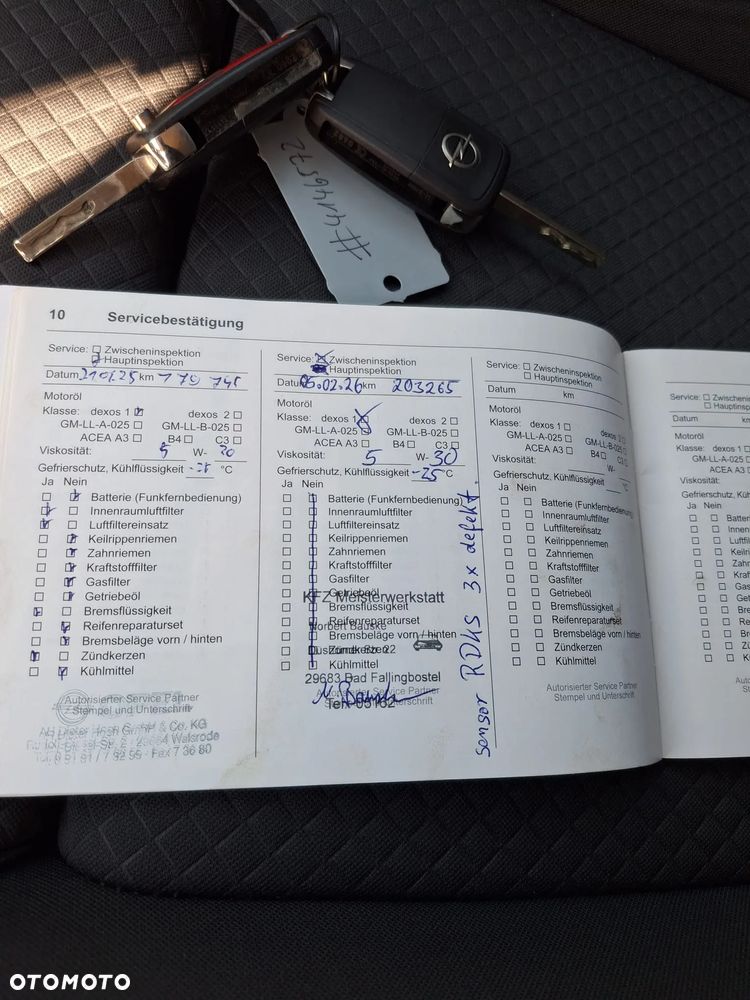 #4146572
10 Servicebestätigung
Service: Zwischeninspektion
Hauptinspektion
Datum 21.01.25 km 179 741
Motoröl
Klasse: dexos 1 dexos 2
GM-LL-A-025 GM-LL-B-025
ACEA A3 B4 C3
Viskosität: 5 W- 30
Gefrierschutz, Kühlflüssigkeit °C
Ja Nein
Batterie (Funkfernbedienung)
Innenraumluftfilter
Luftfiltereinsatz
Keilrippenriemen
Zahnriemen
Kraftstofffilter
Gasfilter
Getriebeöl
Bremsflüssigkeit
Reifenreparaturset
Bremsbeläge vorn / hinten
Zündkerzen
Kühlmittel
Autorisierter Service Partner
Stempel und Unterschrift
GmbH & Co. KG
Walsrode
Fax 7 36 80
Service: Zwischeninspektion
Hauptinspektion
Datum 05.02.26 km 203265
Motoröl
Klasse: dexos 1 dexos 2
GM-LL-A-025 GM-LL-B-025
ACEA A3 B4 C3
Viskosität: 5 W- 30
Gefrierschutz, Kühlflüssigkeit -25 °C
Ja Nein
Batterie (Funkfernbedienung)
Innenraumluftfilter
Luftfiltereinsatz
Keilrippenriemen
Zahnriemen
Kraftstofffilter
Gasfilter
Getriebeöl
KFZ Meisterwerkstatt
Bremsflüssigkeit
Reifenreparaturset
Norbert Bauske
Bremsbeläge vorn / hinten
Zündkerzen
Kühlmittel
29683 Bad Fallingbostel
Autorisierter Service Partner
Stempel und Unterschrift
Tel. 05162
sensor RDKS 3x defekt.
Service: Zwischeninspektion
Hauptinspektion
Datum km
Motoröl
Klasse: dexos 1 dexos 2
GM-LL-A-025 GM-LL-B-025
ACEA A3 B4 C3
Viskosität: W-
Gefrierschutz, Kühlflüssigkeit °C
Ja Nein
Batterie (Funkfernbedienung)
Innenraumluftfilter
Luftfiltereinsatz
Keilrippenriemen
Zahnriemen
Kraftstofffilter
Gasfilter
Getriebeöl
Bremsflüssigkeit
Reifenreparaturset
Bremsbeläge vorn / hinten
Zündkerzen
Kühlmittel
Autorisierter Service Partner
Stempel und Unterschrift
Service:
Datum
Motoröl
Klasse: dexos 1
GM-LL-A-025
ACEA A3
Viskosität:
Gefrierschutz,
Ja Nein
OTOMOTO